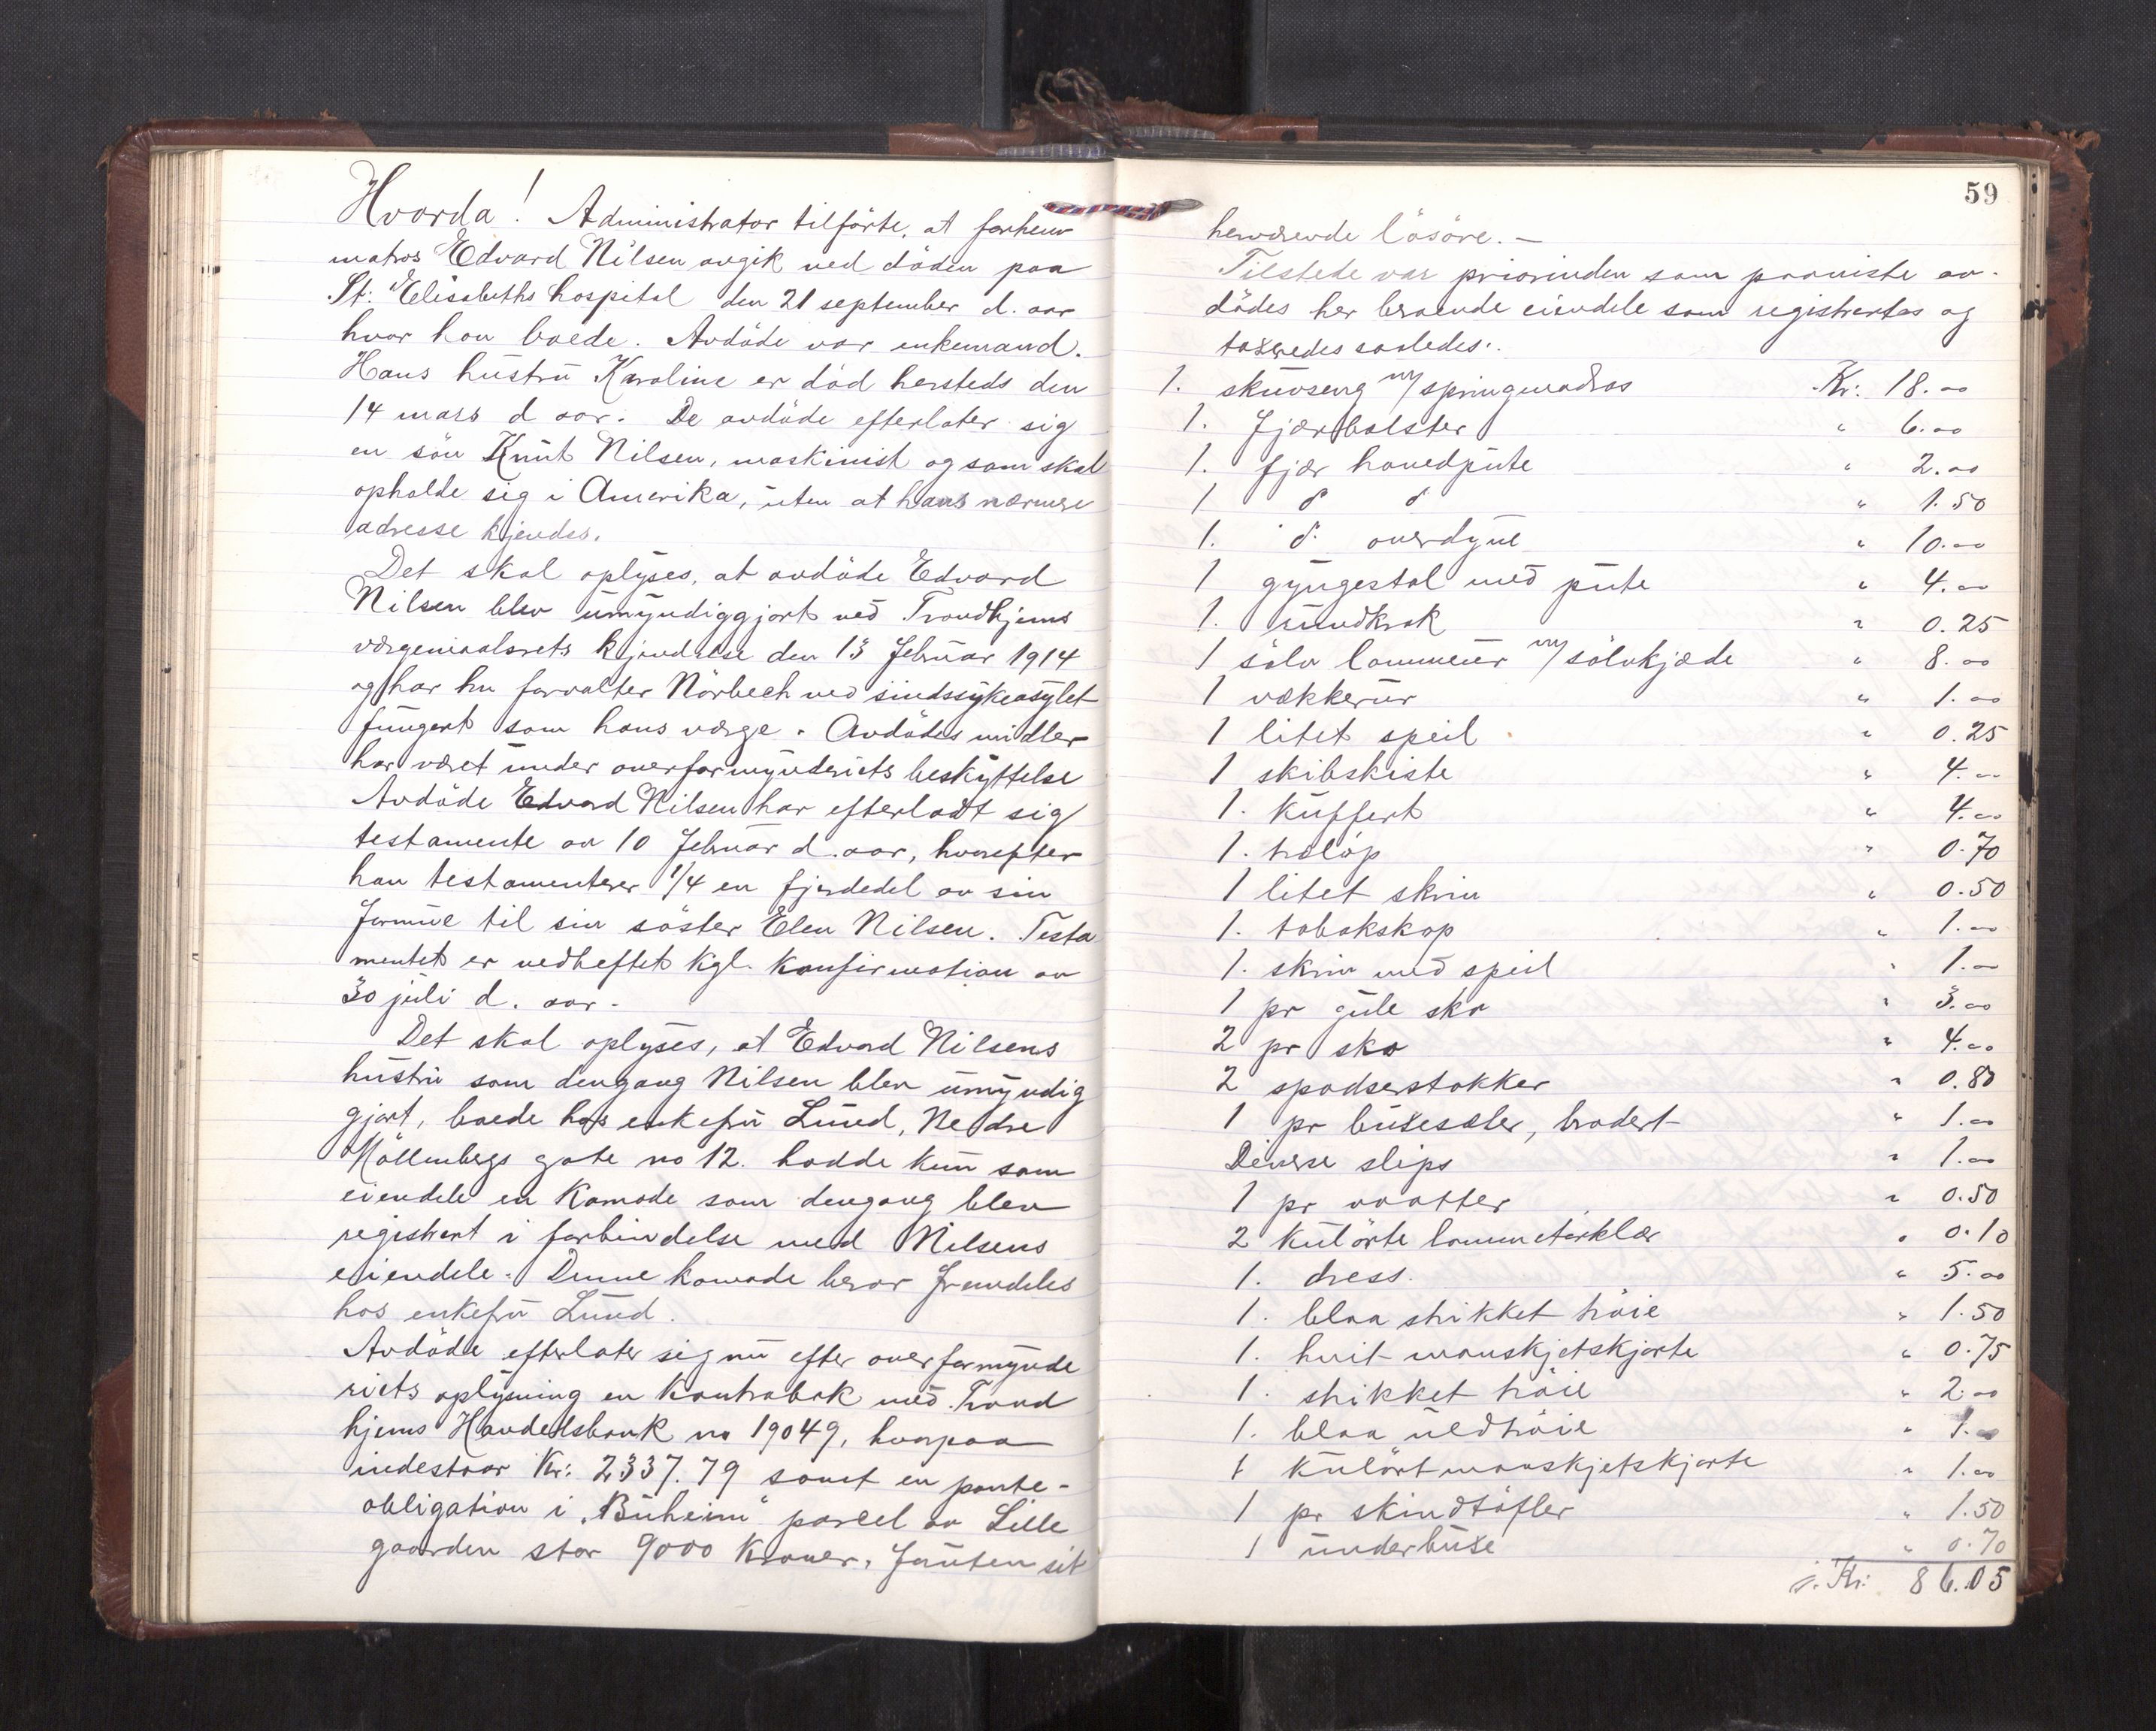 Hvorda! Administrator tilförte, at forhenv
matros Edvard Nilsen avgik ved döden paa
St: Elisabeths hospital den 21 september d. aar
hvor han boede. Avdöde var enkemand.
Hans hustru Karoline er död hersteds den
14 mars d aar. De avdöde efterlater sig
en sön Knut Nilsen, maskinist og som skal
opholde sig i Amerika, uten at hans nærmere
adresse kjendes.
Det skal oplyses, at avdöde Edvard
Nilsen blev umyndiggjort ved Trondhjems
værgemaalsrets kjendelse den 13 februar 1914
og har hr forvalter Nörbech ved sindssykeasylet
fungert som hans værge. Avdödes midler
har været under overformynderiets beskyttelse
Avdöde Edvard Nilsen har efterladt sig
testamente av 10 februar d. aar, hvorefter
han testamenterer 1/4 en fjerdedel av sin
formue til sin söster Elen Nilsen. Testa
mentet er vedheftet kgl. konfirmation av
30 juli d. aar.
Det skal oplyses, at Edvard Nilsens
hustru som dengang Nilsen blev umyndig
gjort, boede hos enkefru Lund, Nedre
Möllenbergs gate no 12. hadde kun som
eiendele en komode som dengang blev
registrert i forbindelse med Nilsens
eiendele. Denne komode beror fremdeles
hos enkefru Lund.
Avdöde efterlater sig nu efter overformynde
riets oplysning en kontrabok med Trond
hjems Handelsbank no 19049, hvorpaa
indestaar Kr: 2337.79 samt en pante-
obligation i "Buheim" parcel av Lille
gaarden stor 9000 Kroner, foruten sit
59
herværende lösöre. —
Tilstede var priorinden som paaviste av-
dödes her beroende eiendele som registrertes og
taxeredes saaledes:
1. skuvseng m/ springmadras Kr: 18.00
1. fjærbolster " 6.00
1. fjær hovedpute " 2.00
1 do do " 1.50
1. do overdyne " 10.00
1 gyngestol med pute " 4.00
1. rundkrak " 0.25
1 sölv lommeur m/ sölvkjæde " 8.00
1 vækkerur " 1.00
1 litet speil " 0.25
1 skibskiste " 4.00
1. kuffert " 4.00
1. traløp " 0.70
1 litet skrin " 0.50
1. tobakskop " 1.00
1. skrin med speil " 1.00
1 pr gule sko " 3.00
2 pr sko " 4.00
2 spadserstokker " 0.80
1 pr buxesæler, brodert " 1.00
Diverse slips " 1.00
1 pr vaatter " 0.50
2 kulörte lommetörklær " 0.10
1. dress. " 5.00
1. blaa strikket tröie " 1.50
1. hvit manskjetskjorte " 0.75
1. strikket tröie " 2.00
1. blaa uldtröie " 1.00
1 kulört manskjetskjorte " 1.00
1 pr skindtöfler " 1.50
1 underbuxe " 0.70
Kr: 86.05